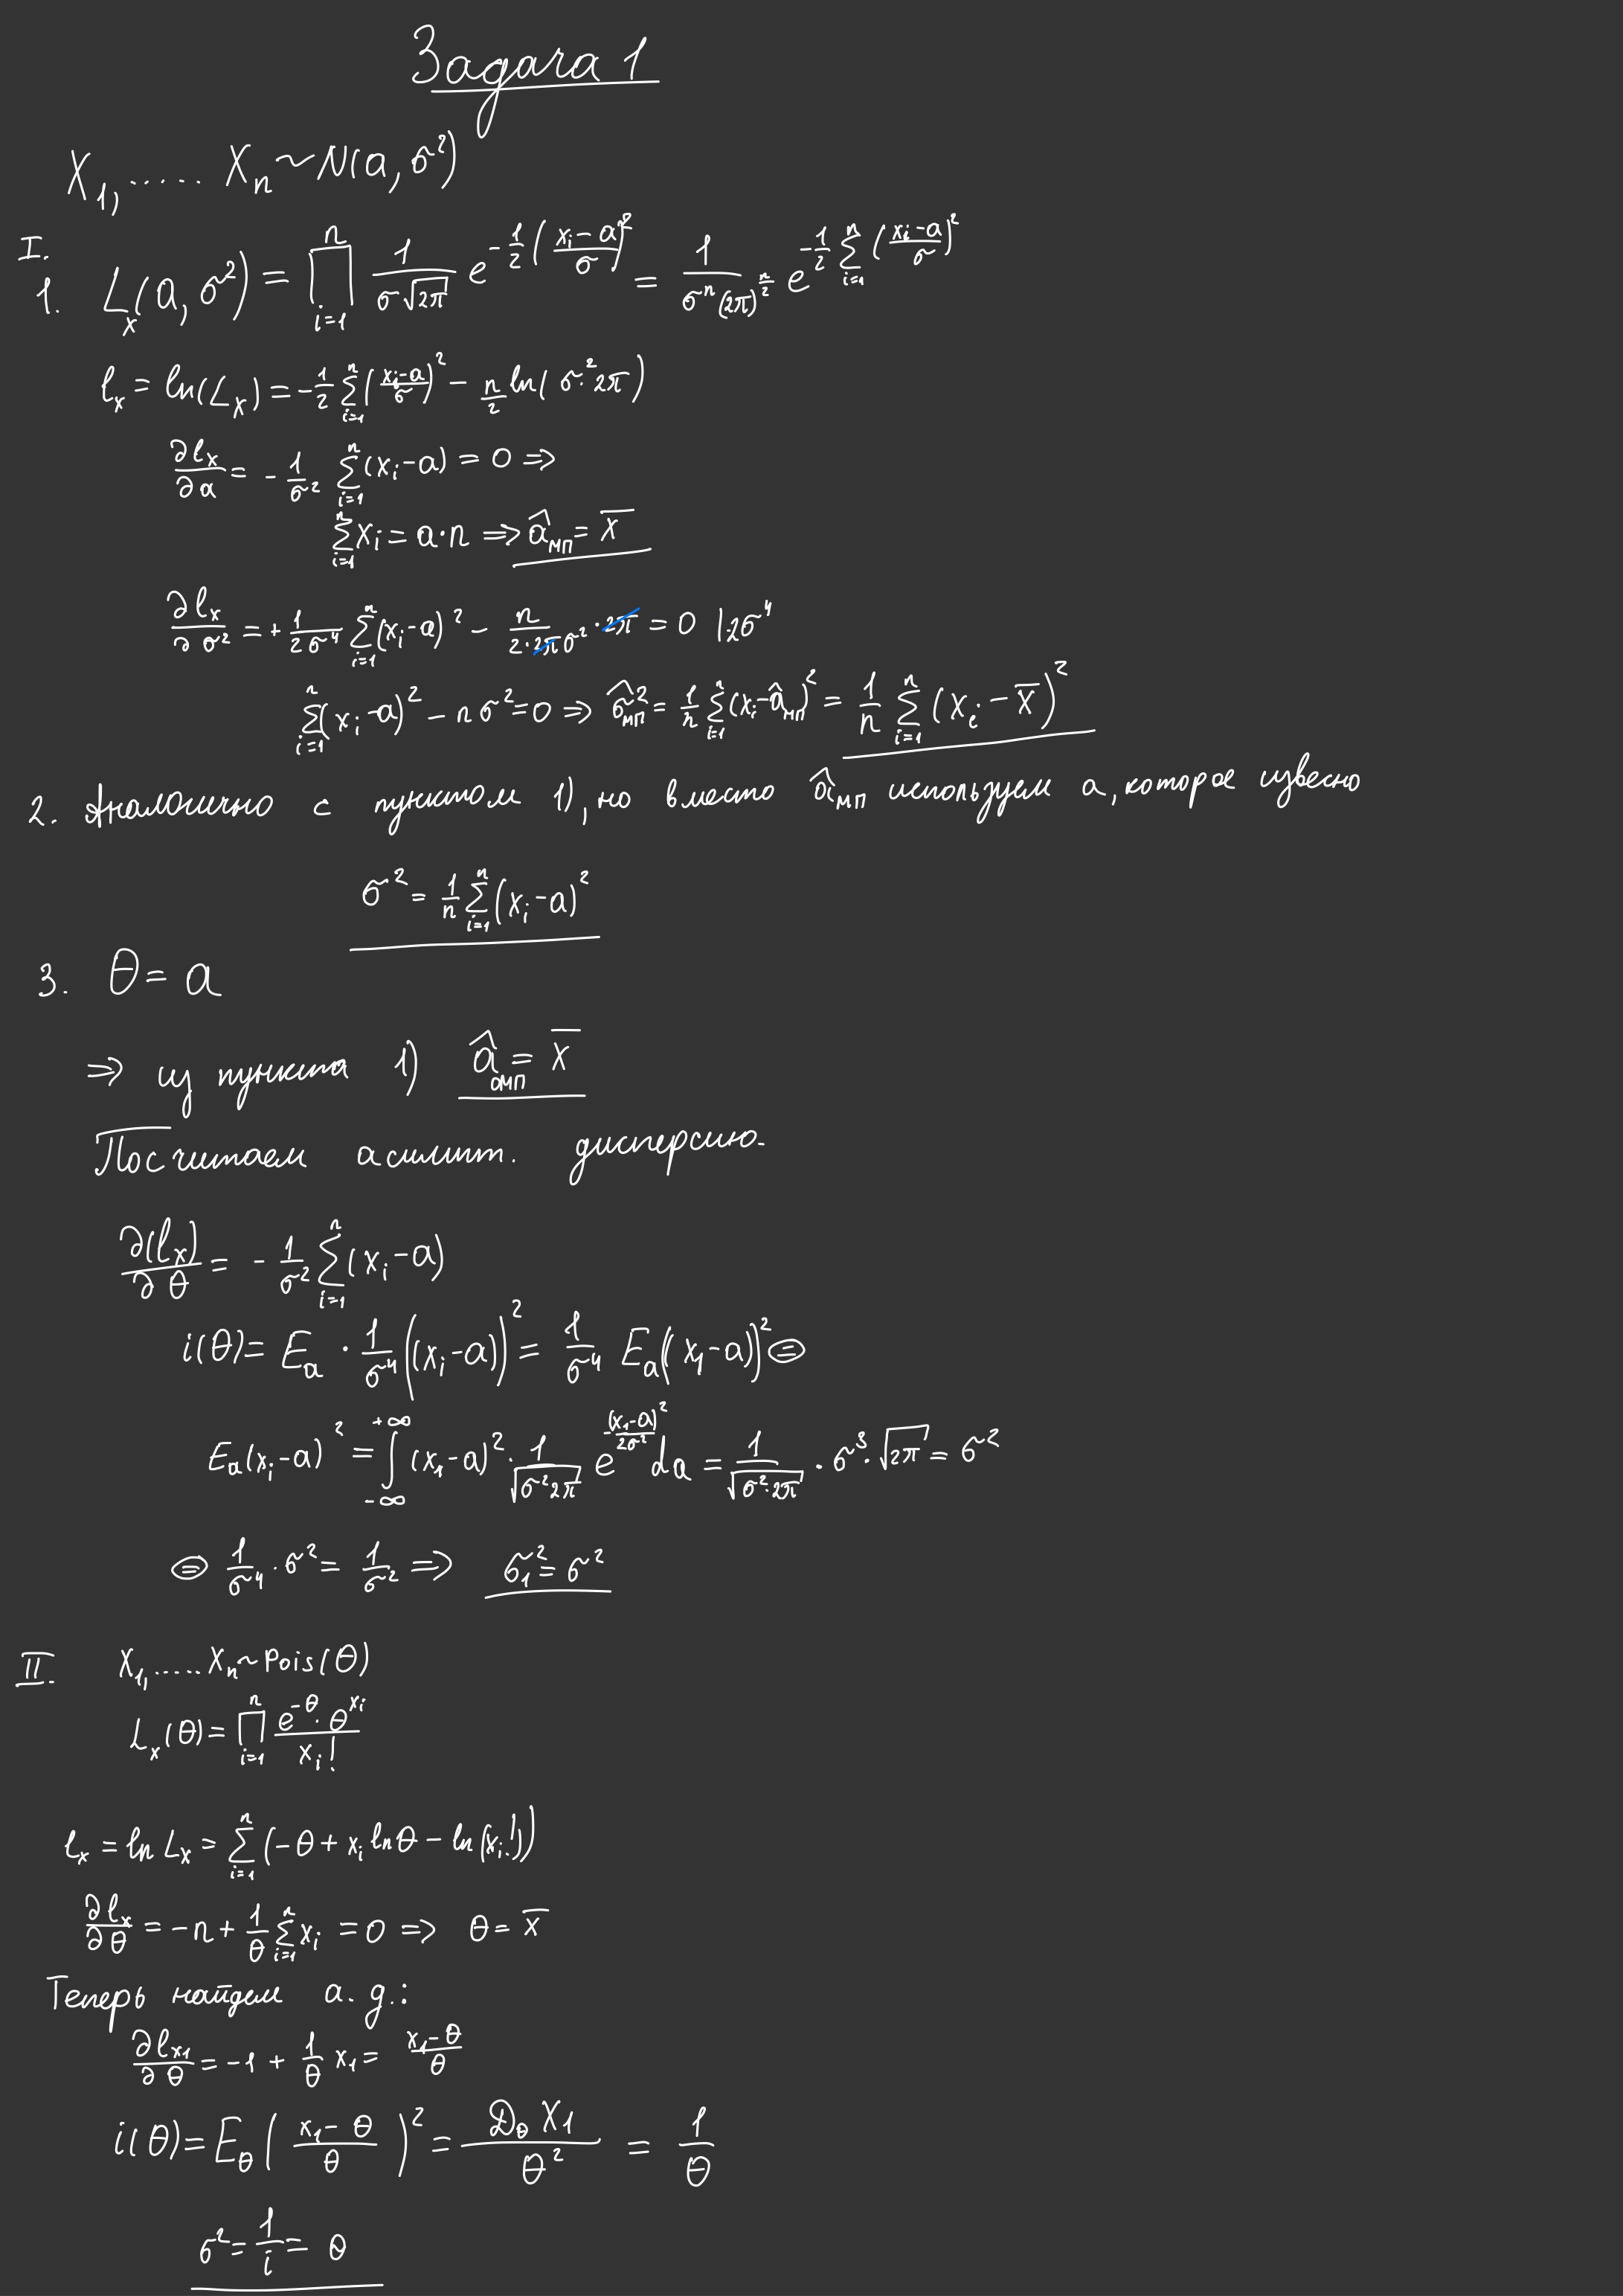 Задача 1
X₁, ..... Xₙ ~ N(a, σ²)
I.
1. Lₓ(a, σ²) = ∏_{i=1}^{n} \frac{1}{σ√{2π}} e^{-\frac{1}{2}(\frac{x_i - a}{σ})²} = \frac{1}{σⁿ(2π)^{\frac{n}{2}}} e^{-\frac{1}{2} ∑_{i=1}^{n} (\frac{x_i - a}{σ})²}
ℓₓ = ln(Lₓ) = -\frac{1}{2} ∑_{i=1}^{n} (\frac{x_i - a}{σ})² - \frac{n}{2} ln(σ²·2π)
\frac{∂ℓₓ}{∂a} = -\frac{1}{σ²} ∑_{i=1}^{n} (x_i - a) = 0 ⇒
∑_{i=1}^{n} x_i = a·n ⇒ \hat{a}_{мп} = \overline{x}
\frac{∂ℓₓ}{∂σ²} = +\frac{1}{2σ⁴} ∑_{i=1}^{n} (x_i - a)² - \frac{n}{2·2πσ²}·2π = 0 |·2σ⁴
∑_{i=1}^{n} (x_i - a)² - nσ² = 0 ⇒ \hat{σ}²_{мп} = \frac{1}{n} ∑_{i=1}^{n} (x_i - \hat{a}_{мп})² = \frac{1}{n} ∑_{i=1}^{n} (x_i - \overline{x})²
2. Аналогично с пунктом 1), но вместо \hat{a}_{мп} используем a, которое извесно
σ² = \frac{1}{n} ∑_{i=1}^{n} (x_i - a)²
3. θ = a
⇒ из пункта 1) \hat{a}_{омп} = \overline{x}
Посчитаем асимпт. дисперсию.
\frac{∂(ℓₓ)}{∂θ} = -\frac{1}{σ²} ∑_{i=1}^{n} (x_i - a)
i(θ) = E_a · \frac{1}{σ⁴} ((x_i - a))² = \frac{1}{σ⁴} E_a((x₁ - a))² ⊜
E_a(x_i - a)² = ∫_{-∞}^{+∞} (x₁ - a)² · \frac{1}{√{σ²2π}} e^{-\frac{(x₁ - a)²}{2σ²}} da = \frac{1}{√{σ²·2π}} · σ³·√{2π} = σ²
⊜ \frac{1}{σ⁴}·σ² = \frac{1}{σ²} ⇒ σ₁² = σ²
II. X₁, ..... Xₙ ~ Pois(θ)
Lₓ(θ) = ∏_{i=1}^{n} \frac{e^{-θ}·θ^{x_i}}{x_i!}
ℓₓ = ln Lₓ = ∑_{i=1}^{n} (-θ + x_i lnθ - ln(x_i!))
\frac{∂ℓₓ}{∂θ} = -n + \frac{1}{θ} ∑_{i=1}^{n} x_i = 0 ⇒ θ = \overline{x}
Теперь найдем а.д.:
\frac{∂ℓ_{x₁}}{∂θ} = -1 + \frac{1}{θ} x₁ = \frac{x₁ - θ}{θ}
i(θ) = E_θ (\frac{x₁ - θ}{θ})² = \frac{D_θ X₁}{θ²} = \frac{1}{θ}
σ² = \frac{1}{i} = θ